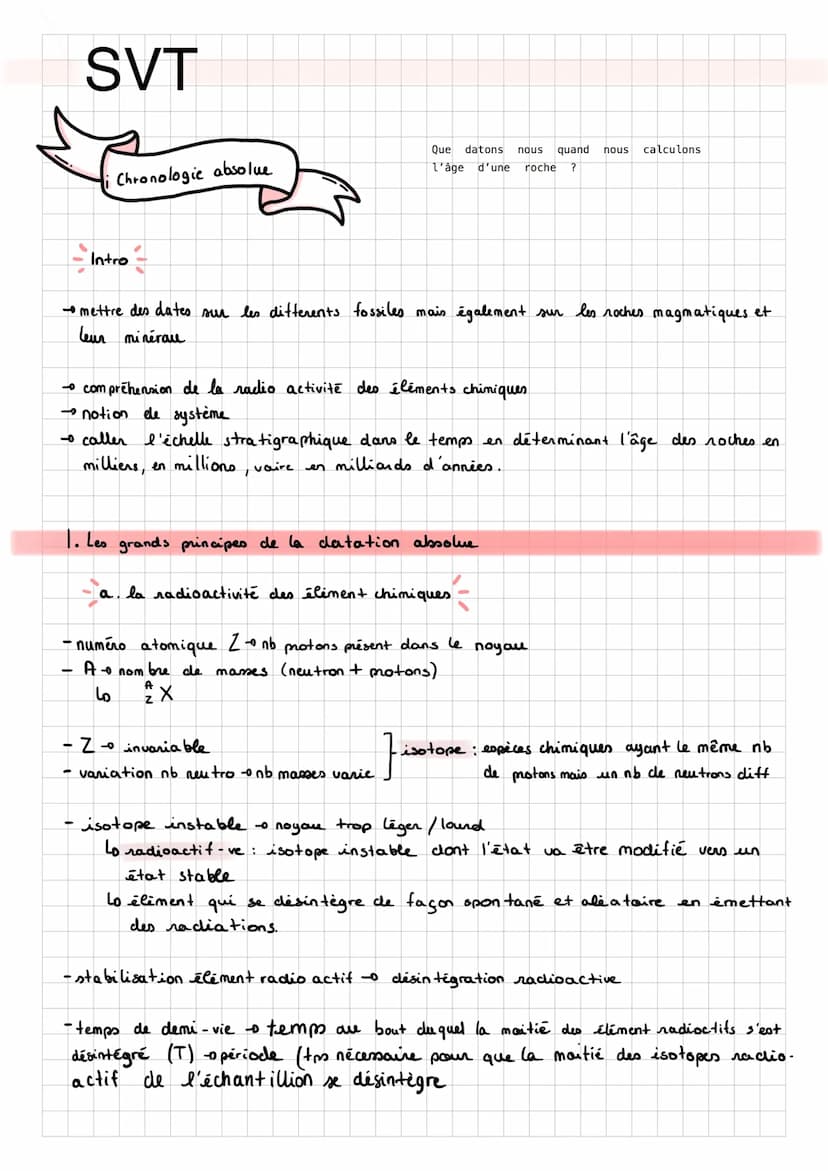 SVT
Chronologie absolue
Que datons nous quand nous calculons
l'âge d'une roche ?
Intro
→ mettre des dates sur les differents fossiles mais également sur les roches magmatiques et
leur minérau
→ compréhension de la radio activité des éléments chimiques
→ notion de système
→ caller l'échelle stratigraphique dans le temps en déterminant l'âge des roches en
milliers, en millions, voire en milliards d'années.
1. Les grands principes de la datation absolue
a. la radioactivité des élément chimiques
- numéro atomique Z → nb protons présent dans le noyau
- A → nombre de masses (neutron + protons)
↳ A/Z X
- Z → invariable
- variation nb neutro → nb masses varie
isotope : espèces chimiques ayant le même nb
de protons mais un nb de neutrons diff
- isotope instable → noyau trop léger / lourd
↳ radioactif-ve : isotope instable dont l'état va être modifié vers un
état stable
↳ élément qui se désintègre de façon spontané et aléatoire en émettant
des radiations.
- stabilisation élément radio actif → désintégration radioactive
- temps de demi-vie → temps au bout duquel la moitié des élément radioctifs s'est
désintégré (T) → période (tps nécessaire pour que la moitié des isotopes radio-
actif de l'échantillion se désintègre